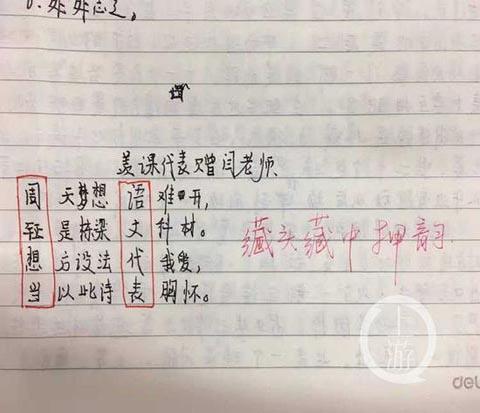 课代表赠闫老师
周天梦想语难开,
轻是栋梁文科材。
想方设法代我爱,
当以此诗表胸怀。
藏头藏中押韵
上游
del